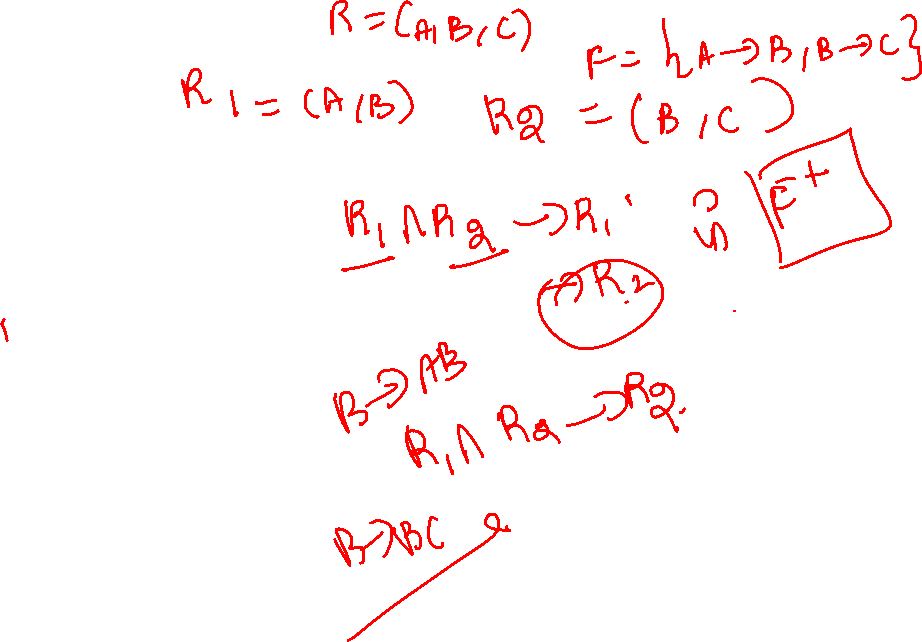 R = (A, B, C)
F = {A → B, B → C}
R1 = (A, B) R2 = (B, C)
R1 ∩ R2 → R1
F+
→ R2
B → AB
R1 ∩ R2 → R2.
B → BC